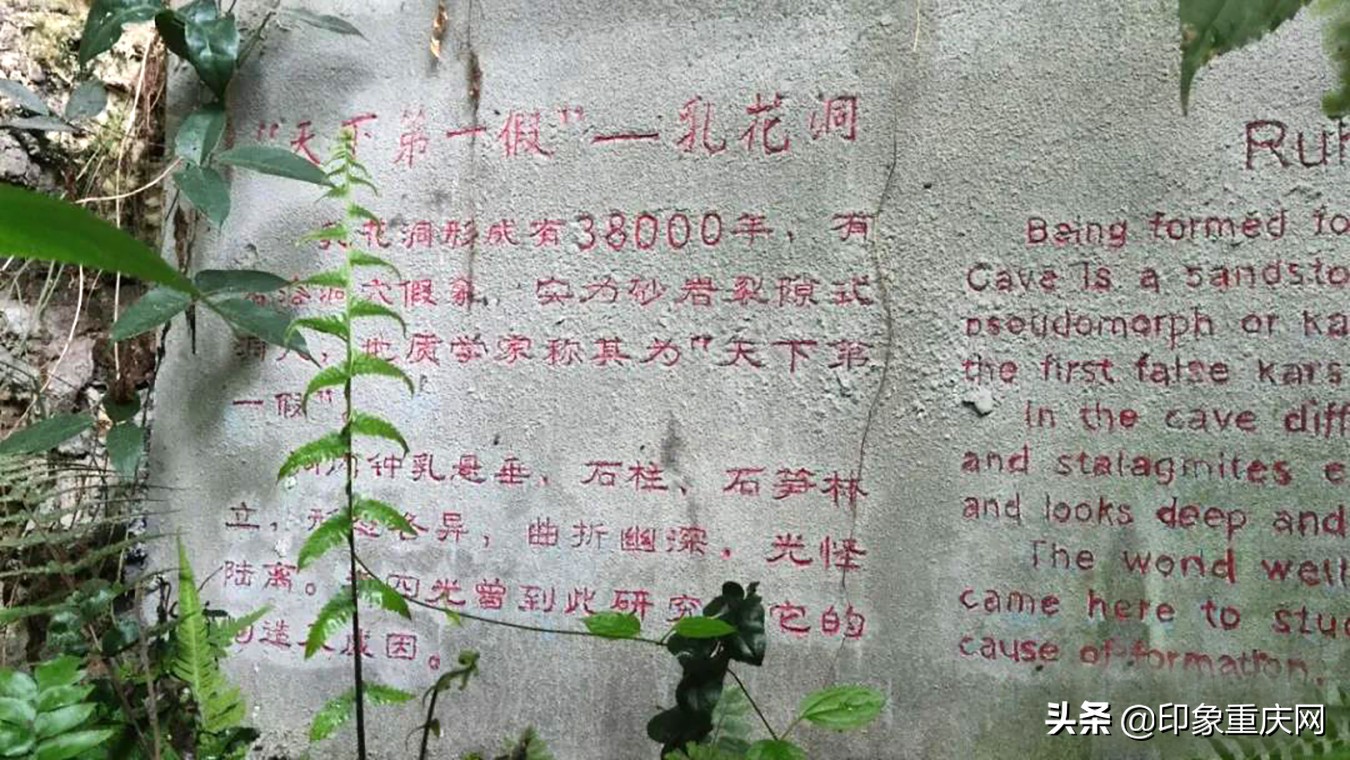 “天下第一假”—乳花洞
花洞形成有38000年，有
溶洞之假象，实为砂岩裂隙式
地质学家称其为“天下第
一假”
洞内钟乳悬垂、石柱、石笋林
立，形态各异，曲折幽深，光怪
陆离。四光曾到此研究它的
造及成因。
Being formed fo
Cave is a sandsto
pseudomorph or Ka
the first false kars
In the cave diff
and stalagmites e
and looks deep and
The wond well
came here to stud
cause of formation.
头条 @印象重庆网